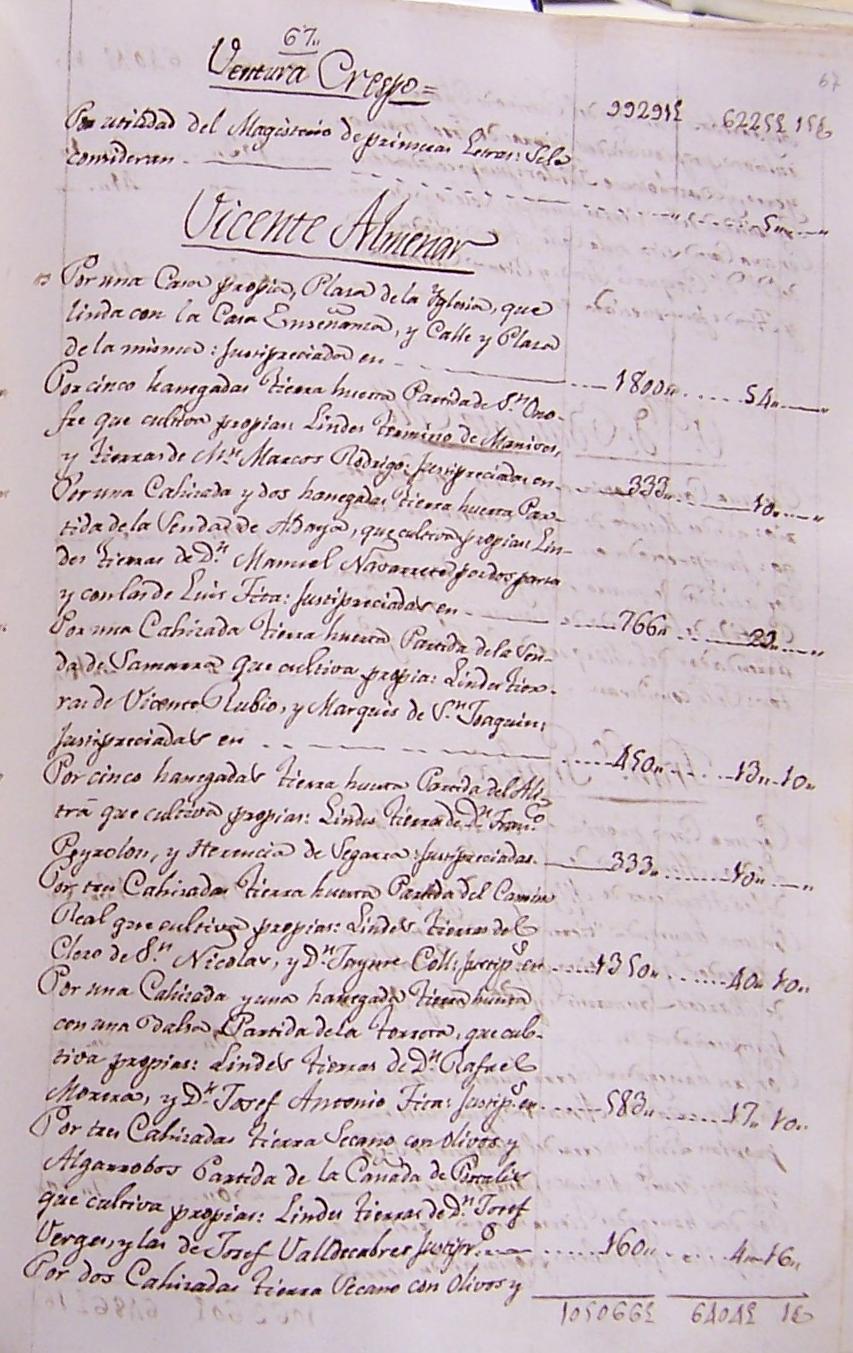 67
67,,
Ventura Crespo =
99291£ 6225£ 15
Por utilidad del Magisterio de primeras Letras: Se le
consideran - 5,, "
Vicente Almenar
Por una Casa propia, Plaza de la Yglesia, que
linda con la Casa Enseñanza, y Calle y Plaza
de la misma: Justipreciada en 1800,, 54,, "
Por cinco hanegadas tierra huerta Partida de Sn. Ono-
fre que cultiva propias: Lindes termino de Manises,
y tierras de Mn. Marcos Rodrigo: Justipreciadas en 333,, 10,, "
Por una Cahizada y dos hanegadas tierra huerta Par-
tida de la Senda de Abaya, que cultiva propias: Lin-
des tierras de Dn. Manuel Navarrete por dos partes
y con las de Luis Fita: Justipreciadas en 766,, 22,, "
Por una Cahizada tierra huerta Partida de la Sen-
da de Samarra que cultiva propia: Lindes tier-
ras de Vicente Rubio, y Marques de Sn. Joaquin:
Justipreciadas en 450,, 13,, 10,,
Por cinco hanegadas tierra huerta Partida del
que cultiva propias: Lindes tierras de Dn. Franco.
Peyrolon, y Herencia de Segarra: Justipreciadas 333,, 10,, "
Por tres Cahizadas tierra huerta Partida del Camino
Real que cultiva propias: Lindes tierras del
Clero de Sn. Nicolas, y Dn. Jayme Coll: Justips. en 1350,, 40,, 10,,
Por una Cahizada y una hanegada tierra huerta
con una Balsa Partida de la torreta, que cul-
tiva propias: Lindes tierras de Dn. Rafael
Morera, y Dn. Josef Antonio Fita: Justips. en 583,, 17,, 10,,
Por tres Cahizadas tierra Secano con olivos y
Algarrobos Partida de la Cañada de
que cultiva propias: Lindes tierras de Dn. Josef
Verges, y las de Josef Valldecabres Justipr.s 160,, 4,, 16,,
Por dos Cahizadas tierra Secano con olivos y
105066£ 6404£ 1